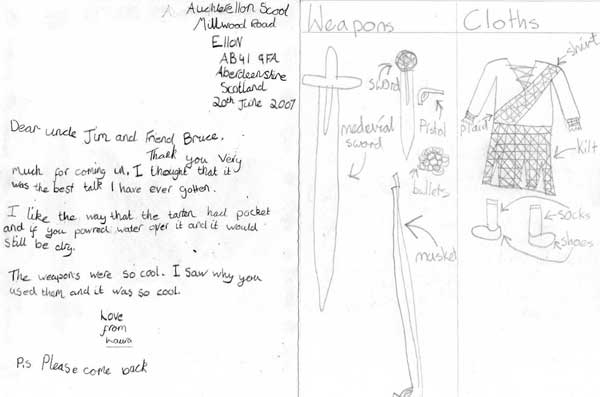 Auchterellon Scool
Millwood Road
Ellon
AB41 9FA
Aberdeenshire
Scotland
20th June 2007
Dear uncle Jim and Friend Bruce.
Thank you very
much for coming in. I thought that it
was the best talk I have ever gotten.
I like the way that the tartan had pocket
and if you powred water over it and it would
still be dry.
The weapons were so cool. I saw why you
used them and it was so cool.
Love
from
P.S Please come back
Weapons
sword
Pistol
medevial
sword
bullets
masket
Cloths
shirt
plaid
kilt
socks
shoes